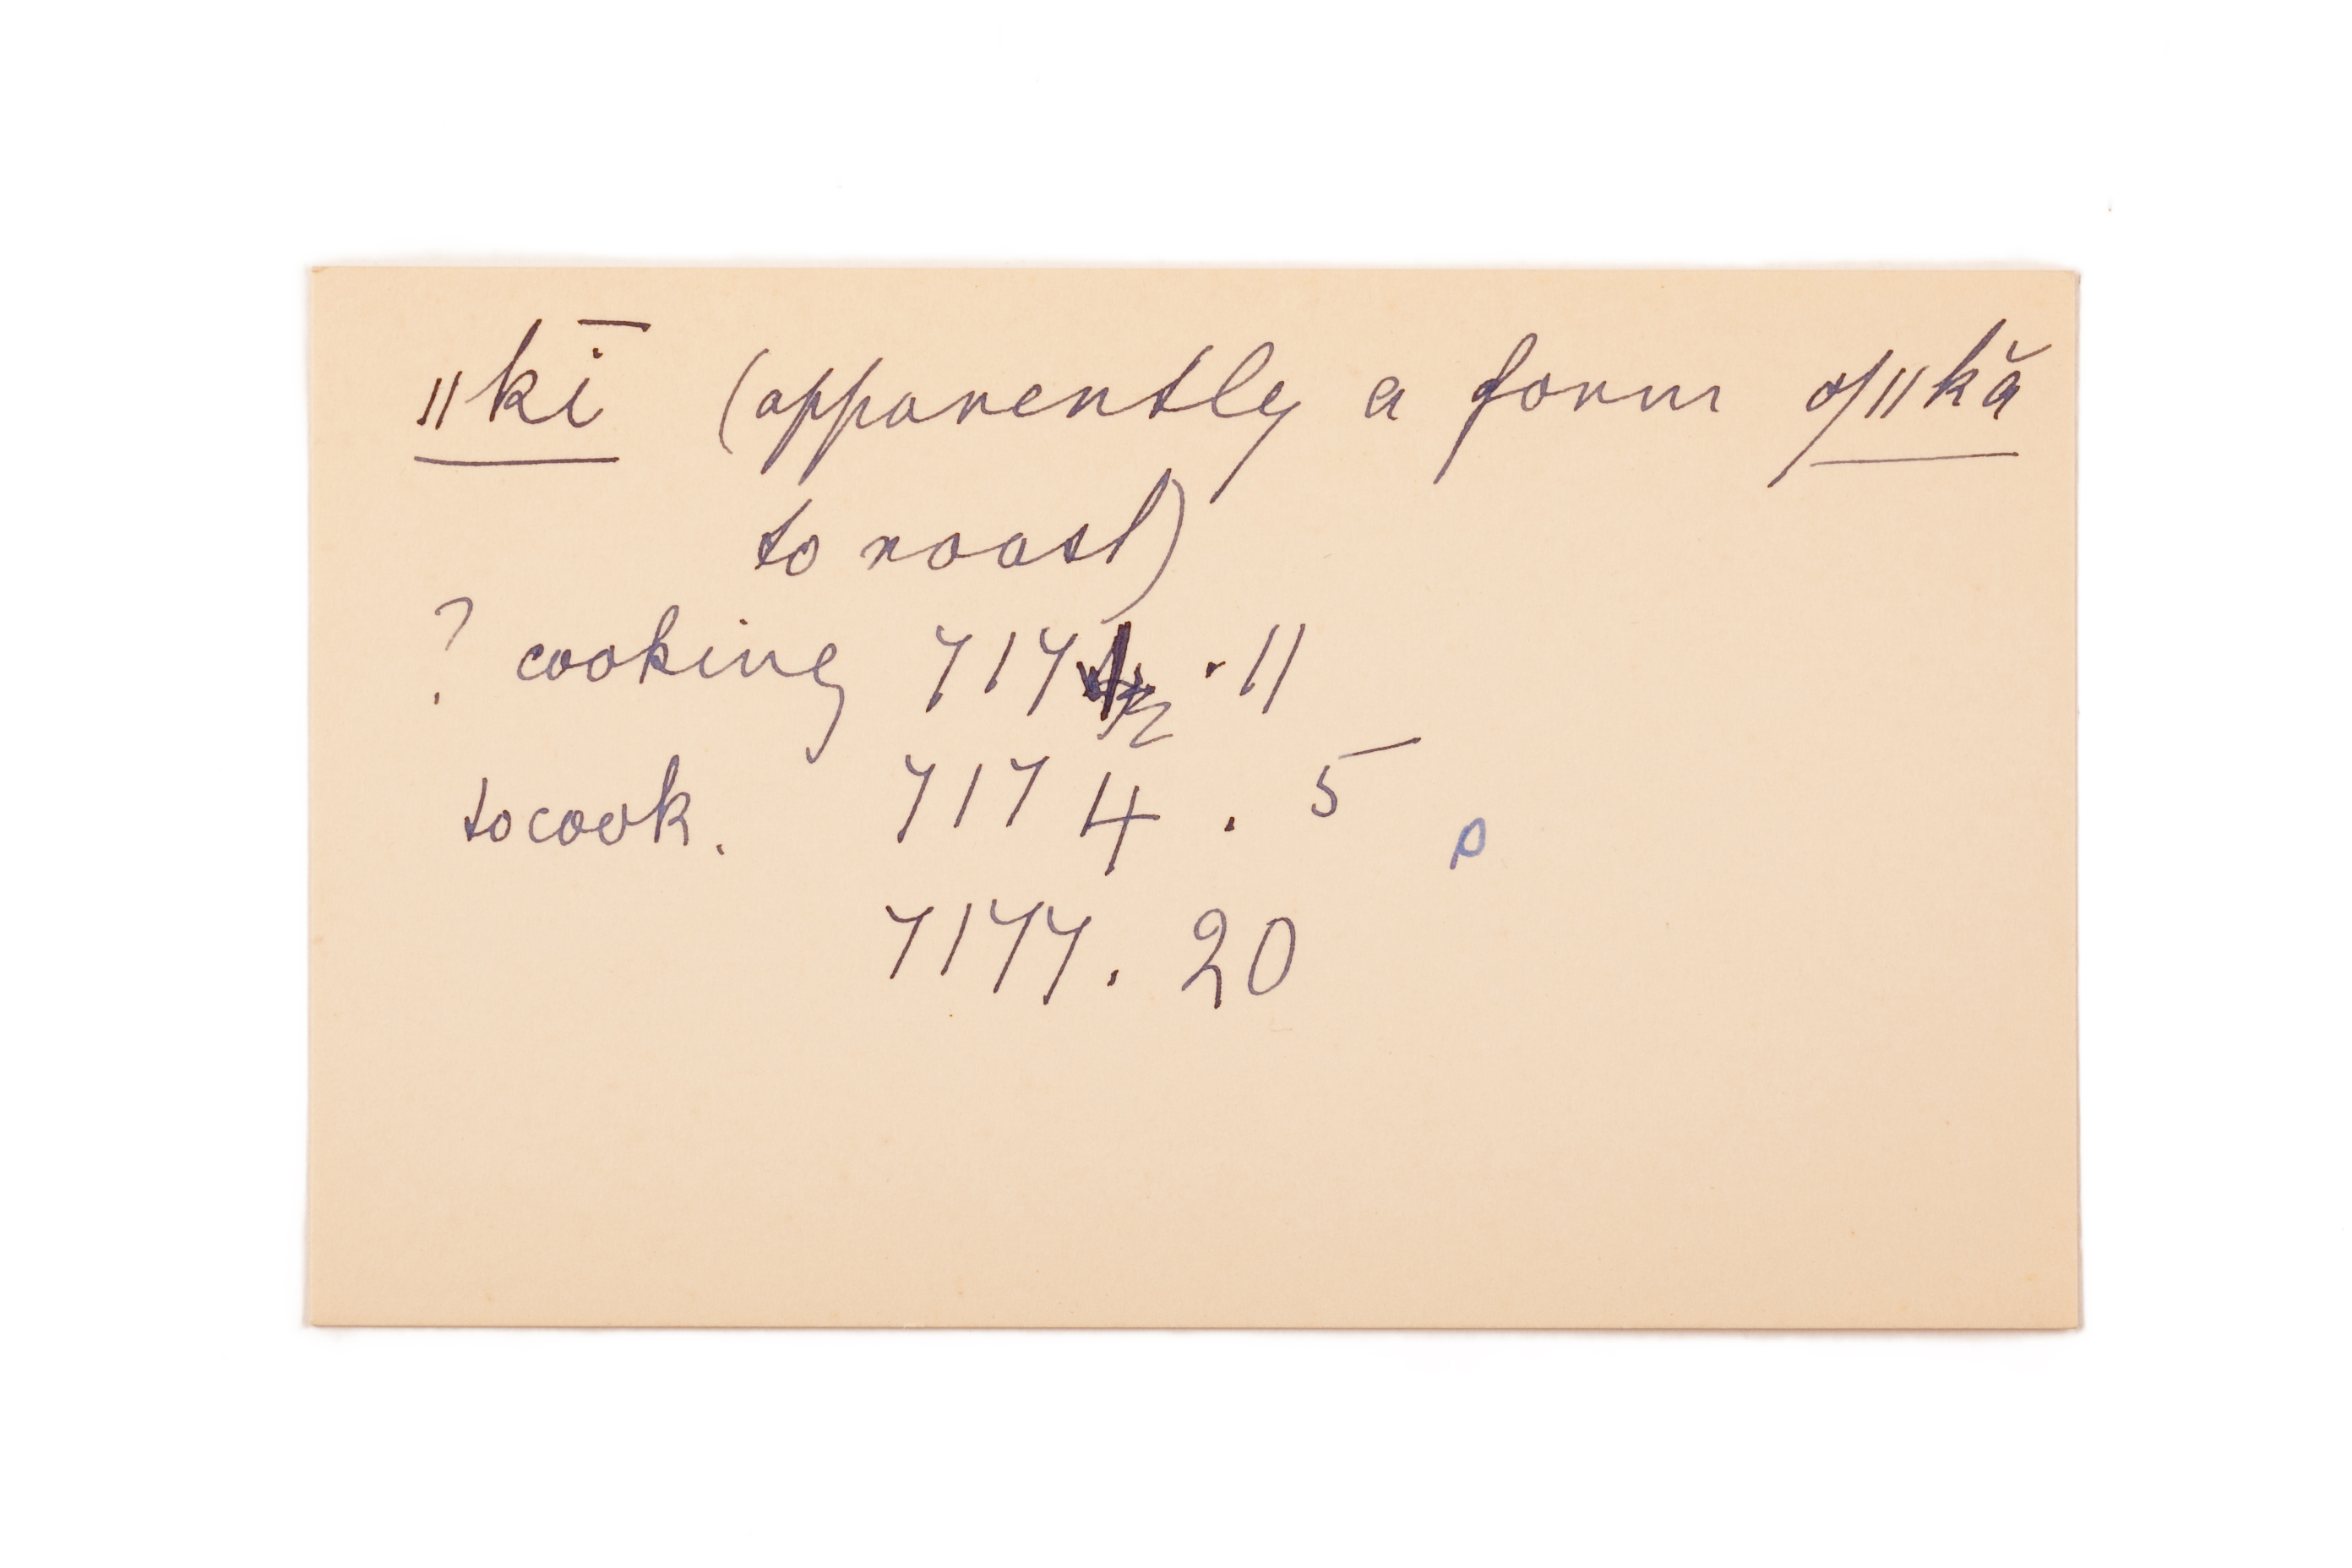 ǁkī (apparently a form of ǁkă
to roast)
? cooking 717 .11
to cook. 7174.5 ρ
7177.20